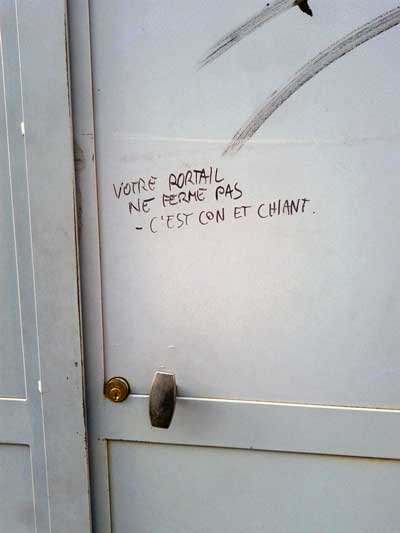 VOTRE PORTAIL
NE FERME PAS
- C'EST CON ET CHIANT.